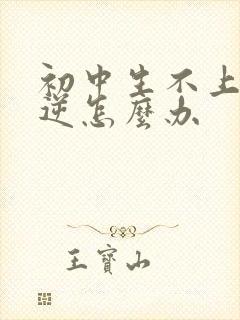 初中生不上
逆怎麼办
王寶山